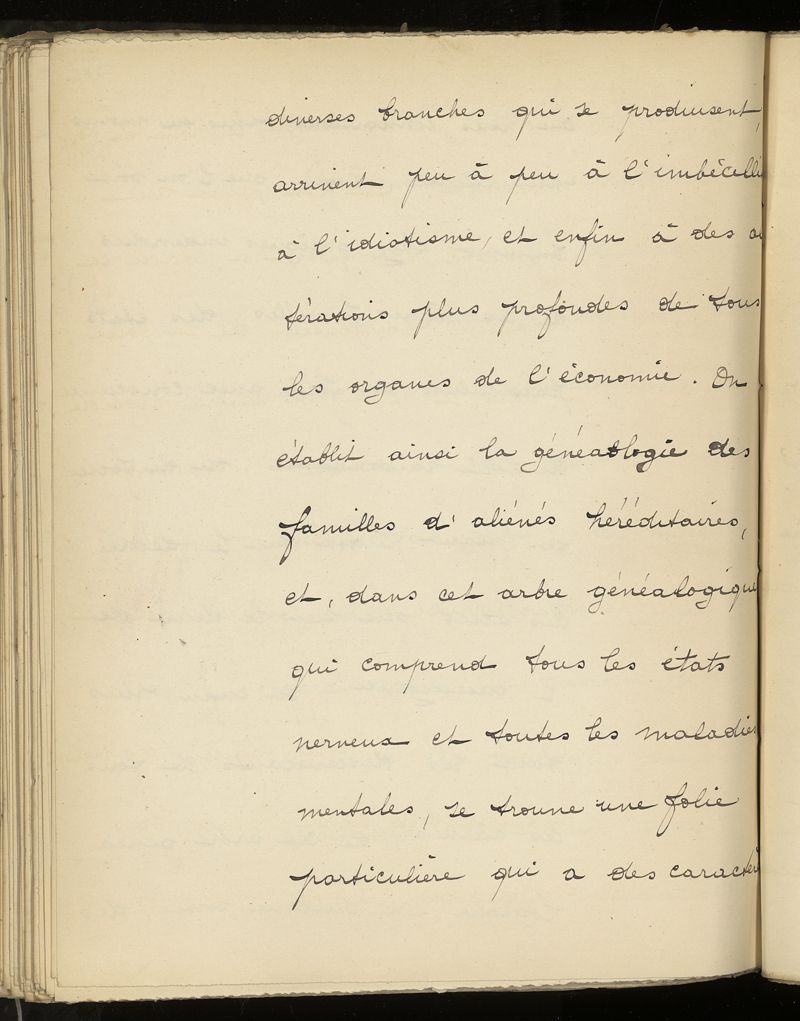 diverses branches qui se produisent,
arrivent peu à peu à l'imbécilli
à l'idiotisme, et enfin à des al
térations plus profondes de tous
les organes de l'économie. On
établit ainsi la généalogie des
familles d'aliénés héréditaires,
et, dans cet arbre généalogique
qui comprend tous les états
nerveux et toutes les maladies
mentales, se trouve une folie
particulière qui a des caractè